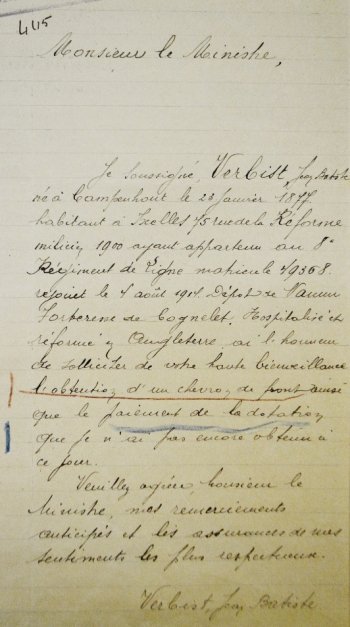 445
Monsieur le Ministre,
Je soussigné, Verbist, Jean Batiste
né à Campenhout le 23 janvier 1877
habitant à Ixelles 75 rue de la Réforme
milicien 1900 ayant appartenu au 8e
Régiment de Ligne matricule 49368.
rejoint le 4 août 1914 Dépôt de Namur
Forteresse de Cognelet. Hospitalisé et
réformé en Angleterre, ai l'honneur
de solliciter de votre haute bienveillance
l'obtention d'un chevron de front ainsi
que le paiement de la dotation
que je n'ai pas encore obtenu à
ce jour.
Veuillez agréer, Monsieur le
Ministre, mes remerciements
anticipés et les assurances de mes
sentiments les plus respectueux.
Verbist, Jean Batiste